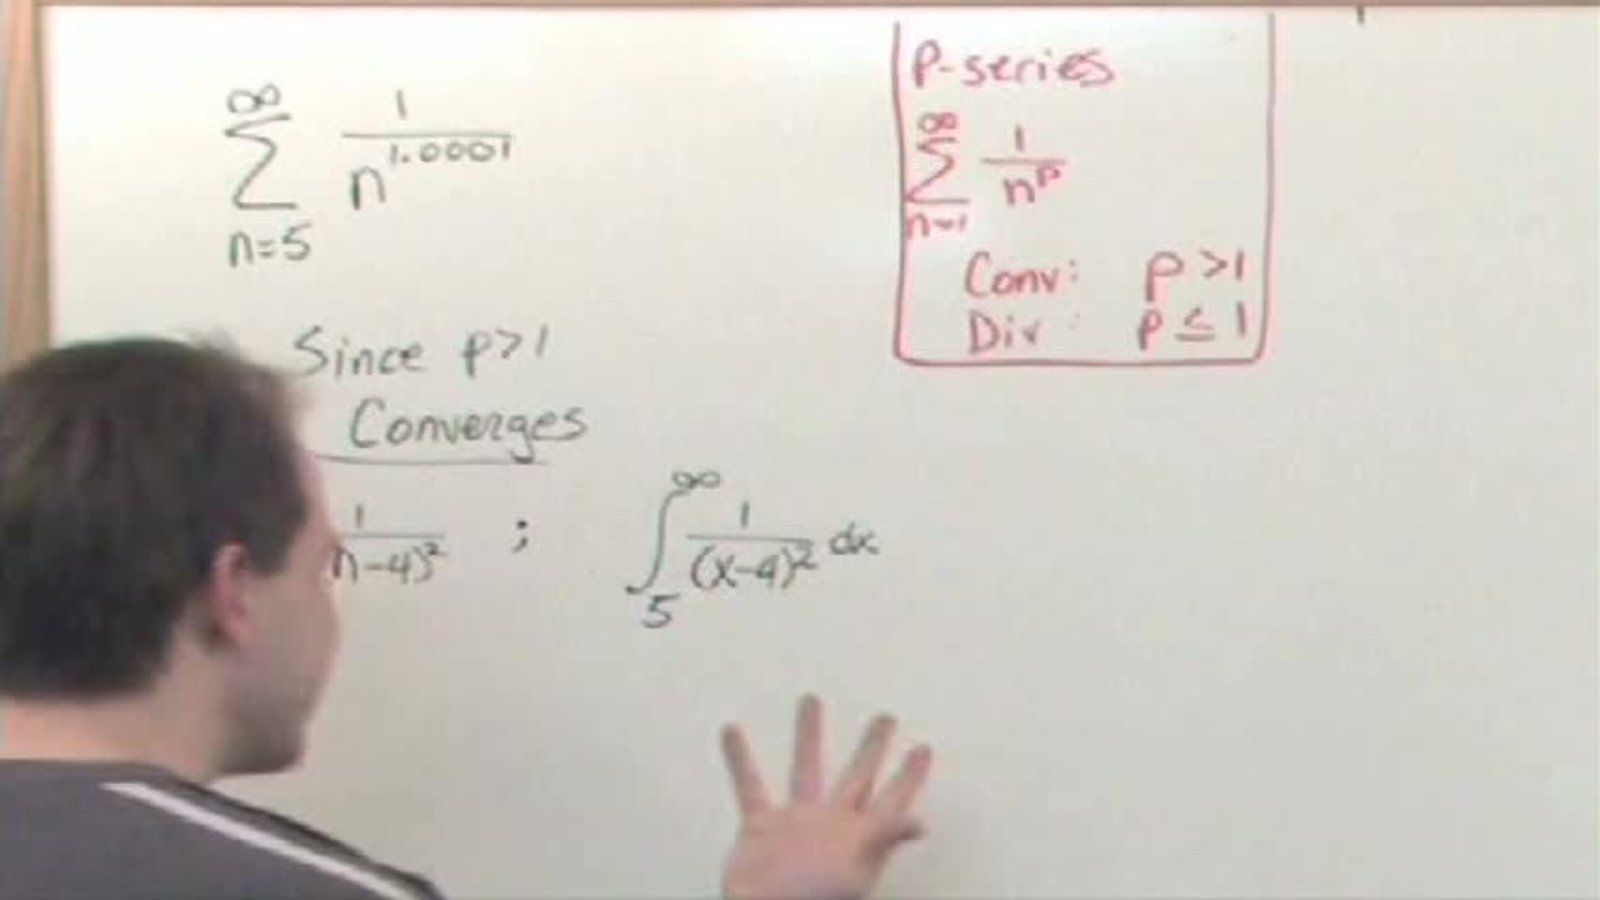 ∞
∑ 1/n^1.0001
n=5
Since p>1
Converges
1/n-4)² ; ∫₅^∞ 1/(x-4)² dx
P-series
∞
∑ 1/n^p
n=1
Conv: p>1
Div: p≤1